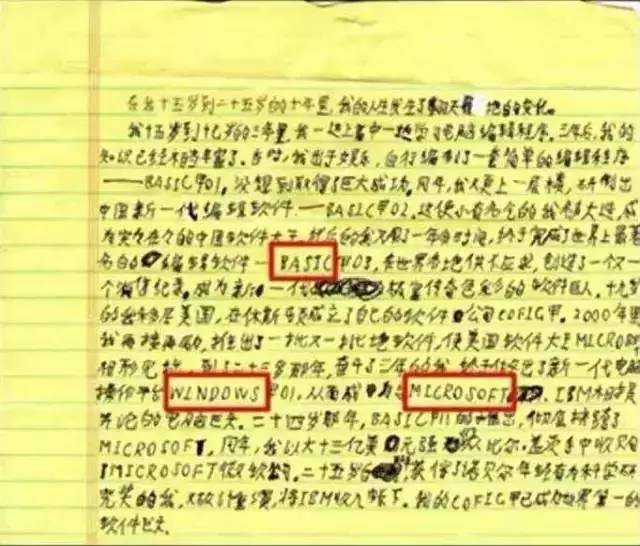 在我十五岁到二十五岁的十年里,我的人生发生了翻天 地自的变化。
我十五岁到十八岁的三年里,我一边上高中一边学习电脑编辑程序。三年后,我的
知识已经相当丰富了。当时,我出于娱乐,自行编制了一套简单的编辑程序
——BASIC甲01,没想到取得了巨大成功。同年,我又更上一层楼,研制出
中国新一代编辑软件——BASIC甲02。这使小有名气的我名声大造,成
为实实在在的中国软件大王。然后的我又用了一年的时间,终于完成了世界上最著
名的 编辑软件—BASIC甲03,在世界各地供不应求,创造了一个又一
个销售纪录。成为新一代 极富传奇色彩的软件巨人。十九岁
的我 美国,在休斯顿成立了自己的软件公司COFIG甲。2000年里
我再接再励,推出了一批又一批 软件,使美国软件大王MICROS
相形见绌。到了二十三岁那年, 了三年的我,终于 出了新一代电脑
操作平台WINDOWS甲01,从而成 为与MICROSOFT、IBM相提
并论的电脑巨头。二十四岁那年,BASIC甲 的推出,彻底 了
MICROSOFT,同年,我以大十三亿美元强 从比尔·盖茨手中收购
了MICROSOFT微软公司。二十五岁 获得了诺贝尔年轻有为科学研
究奖的我, ,将IBM收入帐下。我的COFIG甲已成为世界第一的
软件巨头。